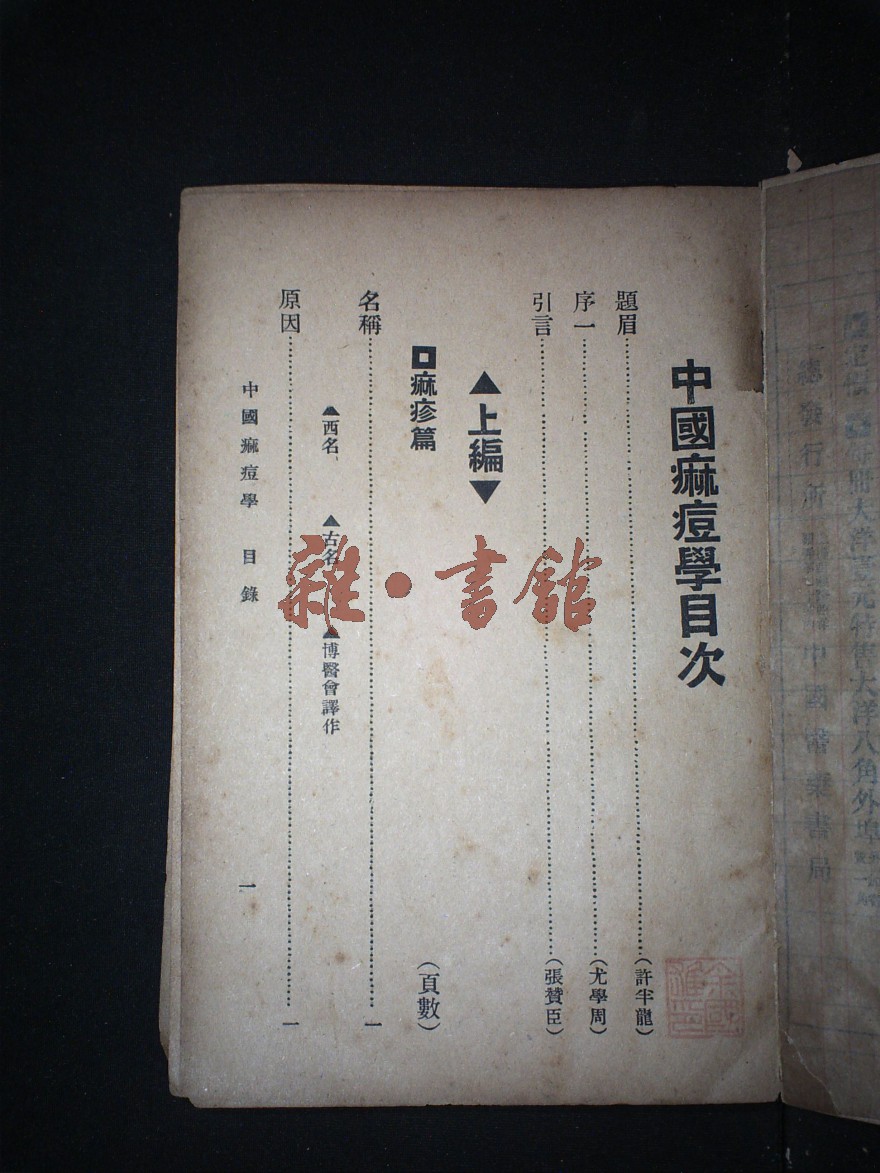 中國痲痘學目次
題眉……(許半龍)
序一……(尤學周)
引言……(張贊臣)
▲上編▼
口痲疹篇 (頁數)
名稱……一
▲西名 ▲古名 ▲博醫會譯作
原因……一
中國痲痘學 目錄 一
雜·書館
總發行所
中國醫藥書局
大洋八角外埠